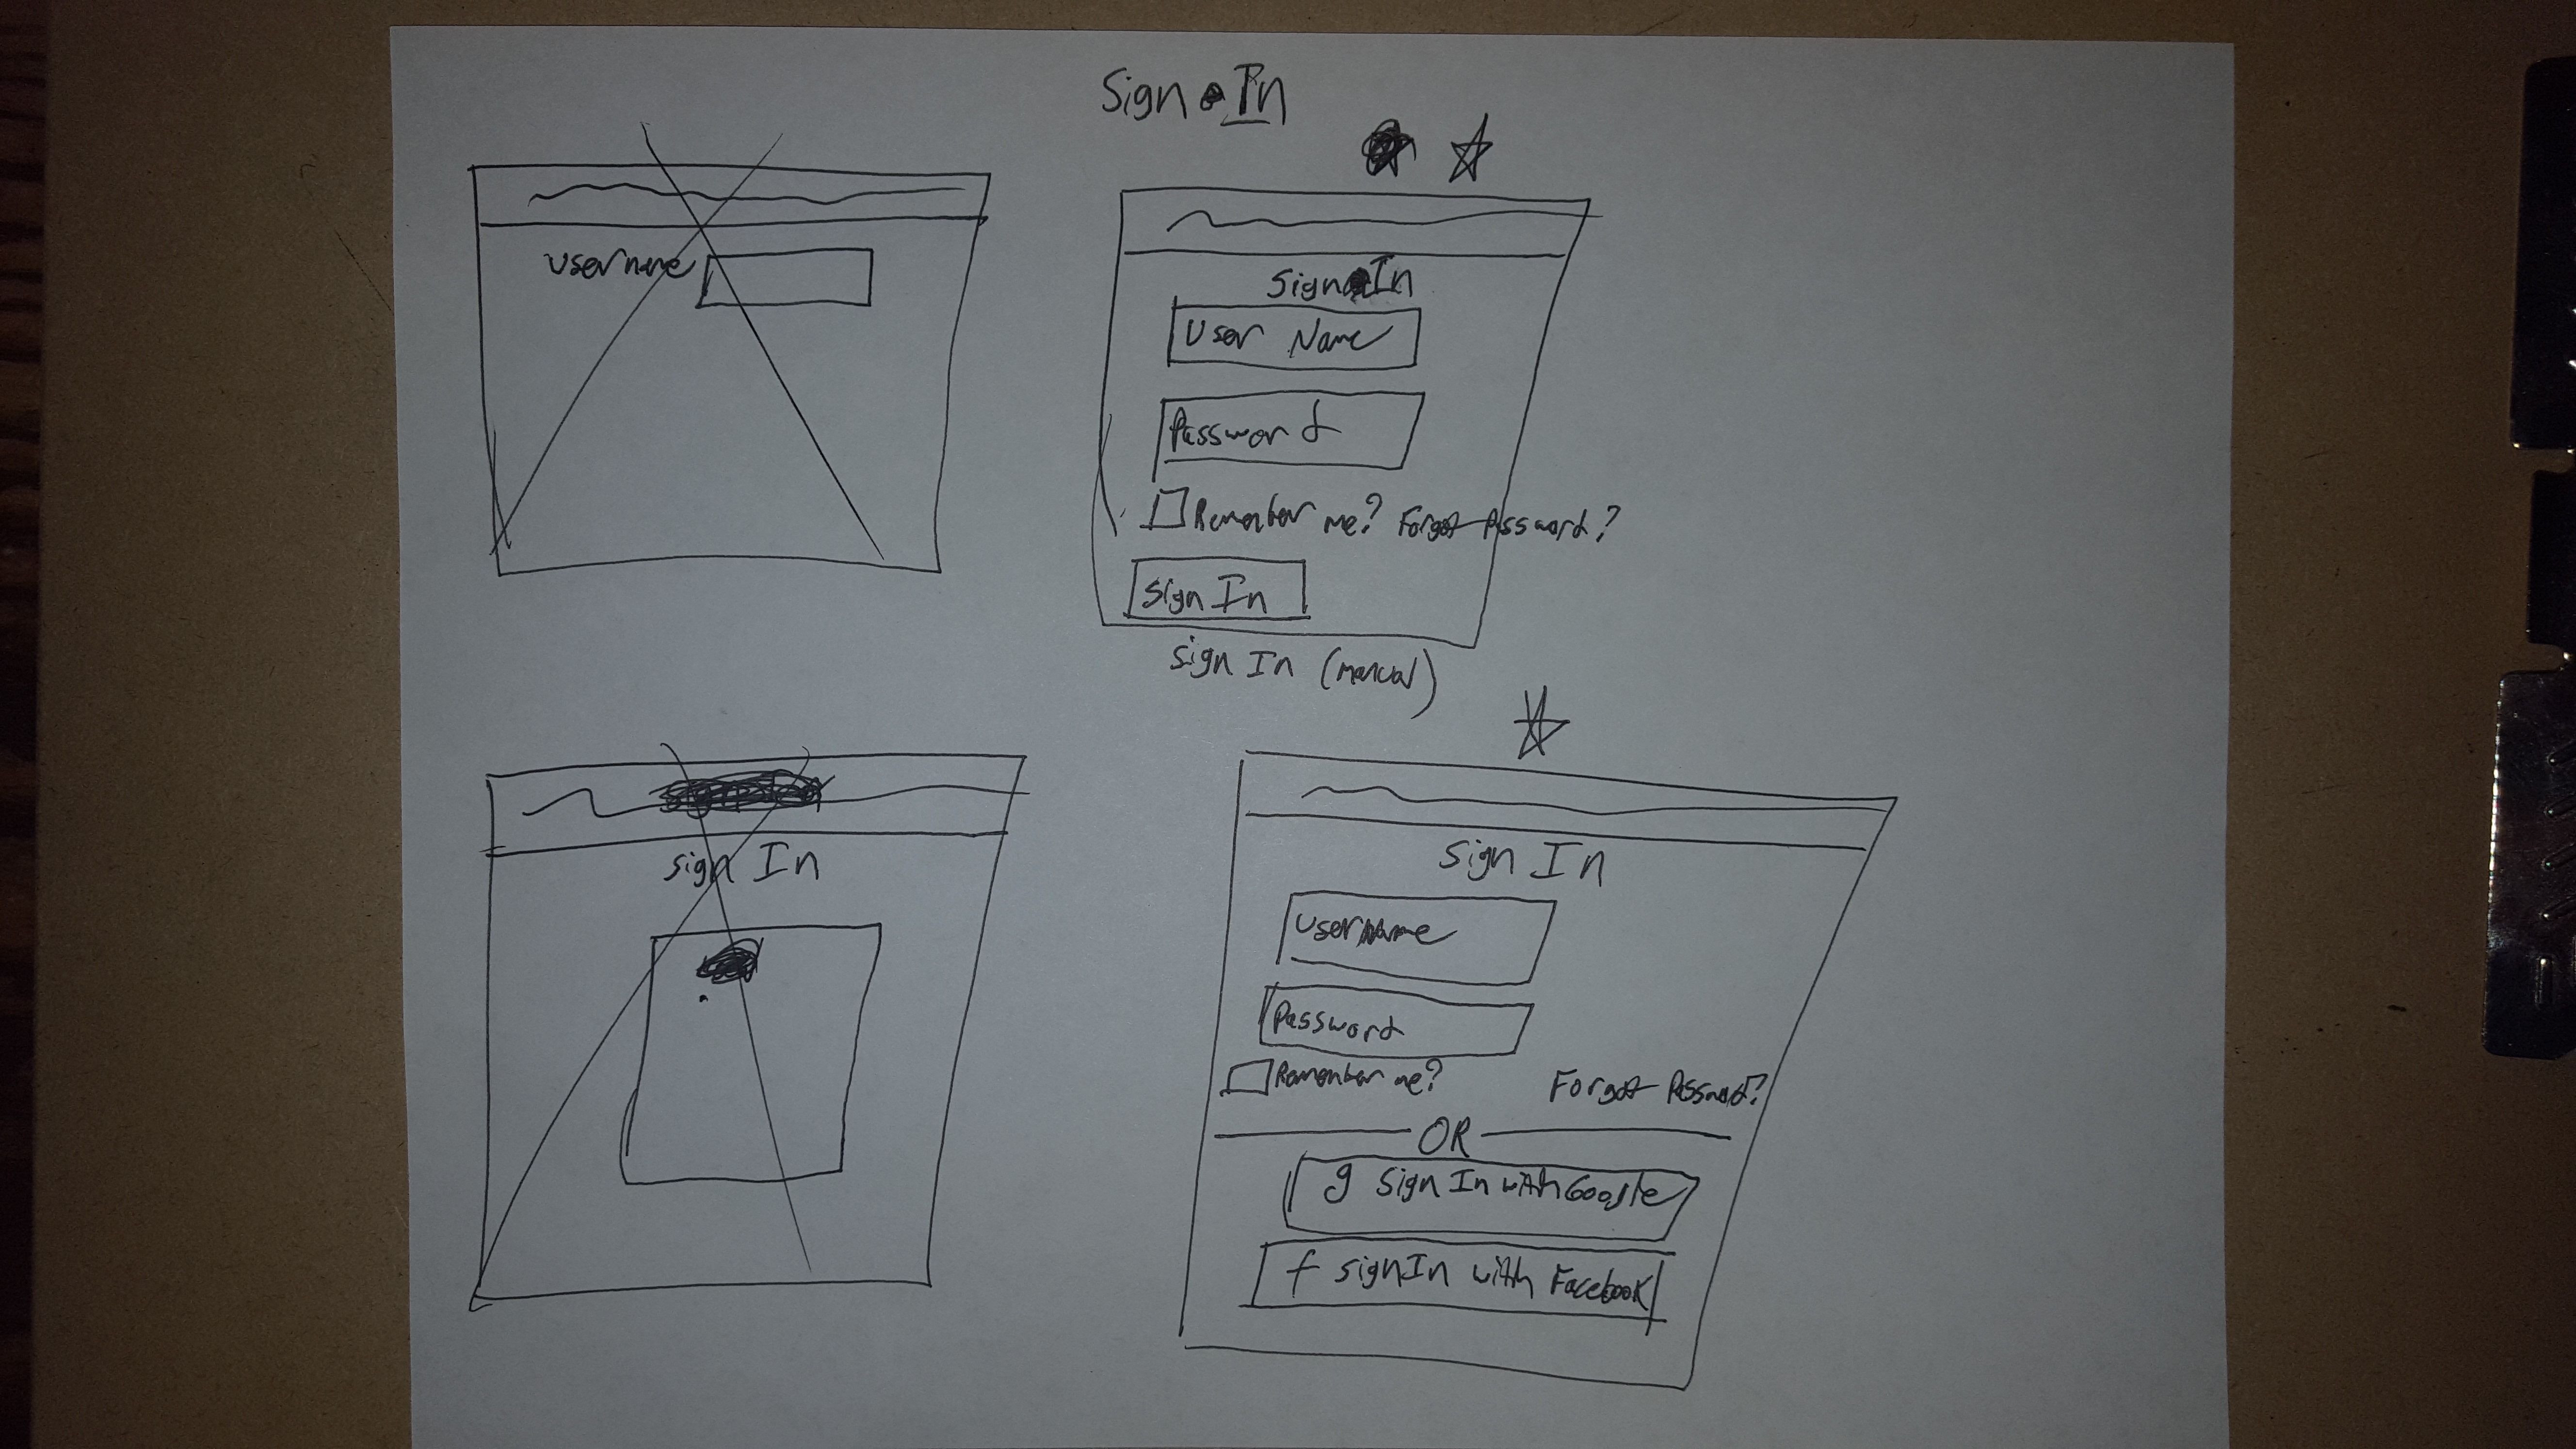 Sign In
username
Sign In
User Name
Password
Remember me? Forgot Password?
Sign In
Sign In (manual)
Sign In
Sign In
UserName
Password
Remember me? Forgot Password?
OR
g Sign In with Google
f Sign In with Facebook